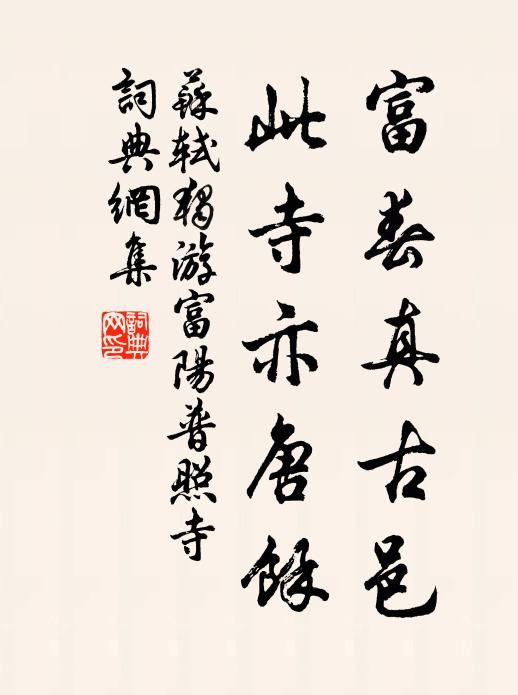 富春真古邑
此寺亦唐餘
蘇軾獨游富陽普照寺
詞典網集
詞典
网印